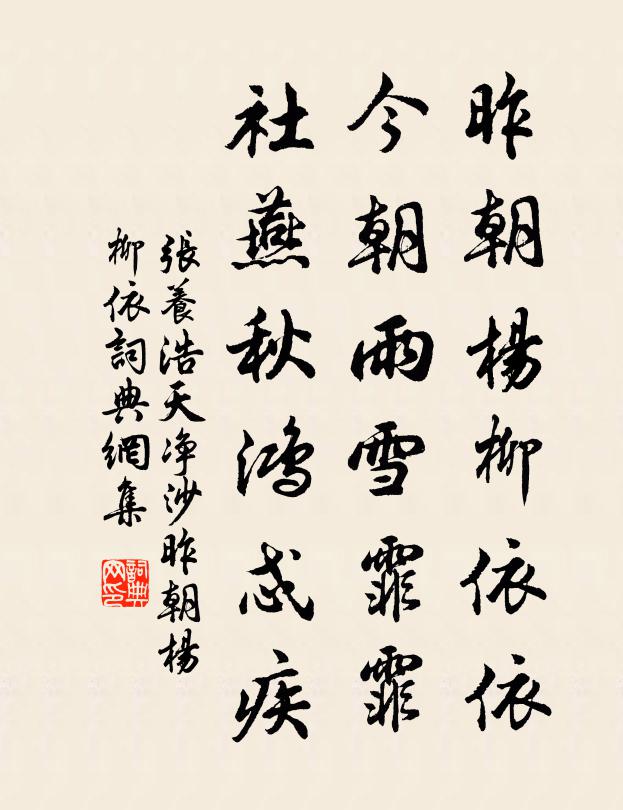 昨朝楊柳依依
今朝雨雪霏霏
社燕秋鴻忒疾
張養浩天净沙昨朝楊
柳依詞典網集
詞典
网印